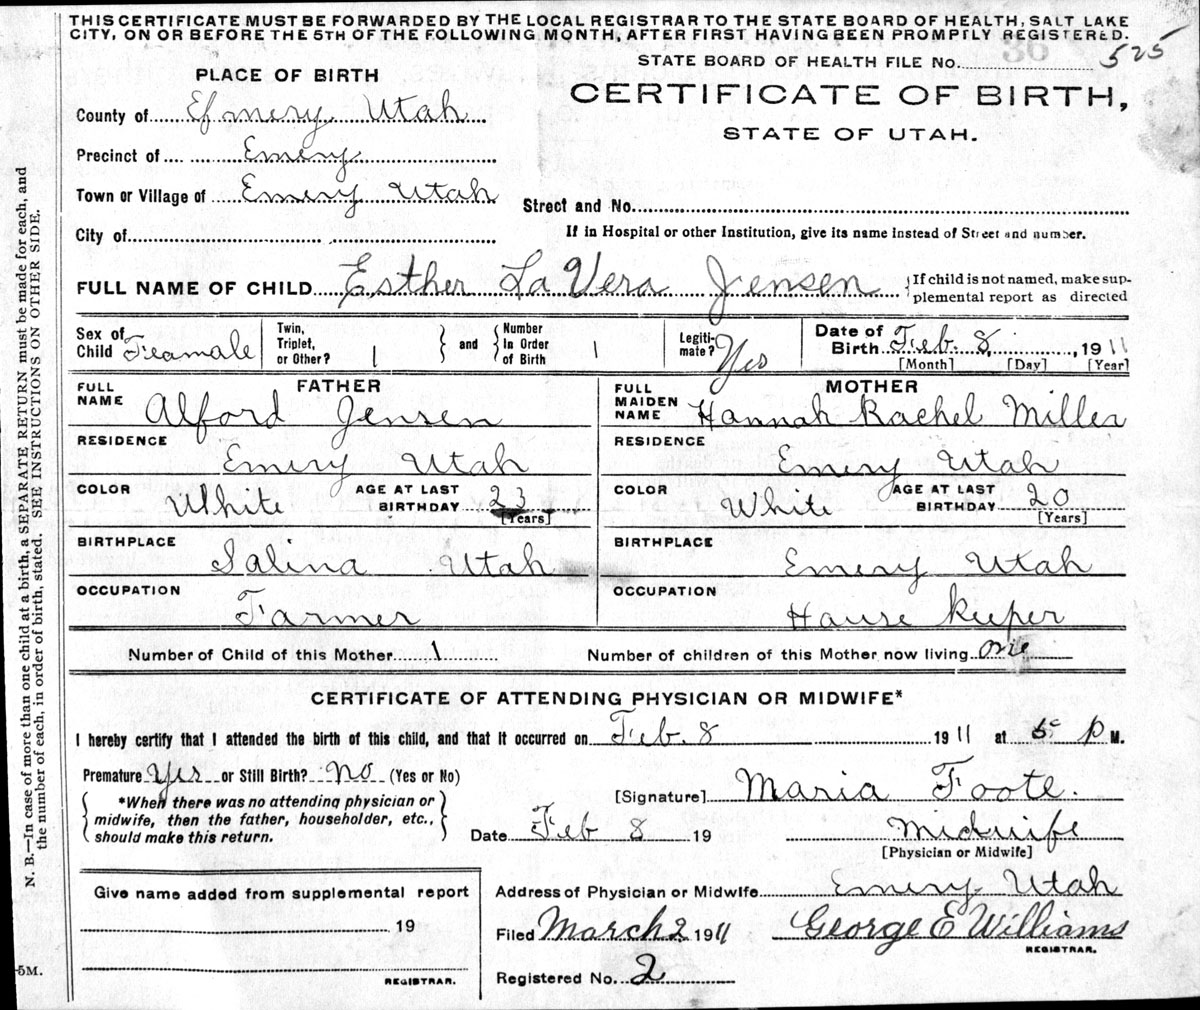 THIS CERTIFICATE MUST BE FORWARDED BY THE LOCAL REGISTRAR TO THE STATE BOARD OF HEALTH, SALT LAKE
CITY, ON OR BEFORE THE 5TH OF THE FOLLOWING MONTH, AFTER FIRST HAVING BEEN PROMPTLY REGISTERED.
36
STATE BOARD OF HEALTH FILE No. 525
PLACE OF BIRTH
CERTIFICATE OF BIRTH,
STATE OF UTAH.
County of Emery Utah
Precinct of Emery
Town or Village of Emery Utah
Street and No.
City of
If in Hospital or other Institution, give its name instead of Street and number.
FULL NAME OF CHILD Esther La Vera Jensen {If child is not named, make sup-
plemental report as directed
Sex of Child Feamale
Twin, Triplet, or Other? 1 } and { Number In Order of Birth 1
Legiti-mate? Yes
Date of Birth Feb. 8, 1911
[Month] [Day] [Year]
FATHER
FULL NAME Alford Jensen
MOTHER
FULL MAIDEN NAME Hannah Rachel Miller
RESIDENCE Emery Utah
RESIDENCE Emery Utah
COLOR White AGE AT LAST BIRTHDAY 23 [Years]
COLOR White AGE AT LAST BIRTHDAY 20 [Years]
BIRTHPLACE Salina Utah
BIRTHPLACE Emery Utah
OCCUPATION Farmer
OCCUPATION Hause keeper
Number of Child of this Mother 1
Number of children of this Mother now living one
CERTIFICATE OF ATTENDING PHYSICIAN OR MIDWIFE*
I hereby certify that I attended the birth of this child, and that it occurred on Feb. 8 1911 at 5 P M.
Premature? Yes or Still Birth? No (Yes or No)
*When there was no attending physician or
midwife, then the father, householder, etc.,
should make this return.
[Signature] Maria Foote.
Date Feb 8 19
Midwife
[Physician or Midwife]
Give name added from supplemental report
19
REGISTRAR.
Address of Physician or Midwife Emery Utah
Filed March 2 1911 George E Williams
REGISTRAR.
Registered No. 2
N. B.—In case of more than one child at a birth, a SEPARATE RETURN must be made for each, and
the number of each, in order of birth, stated. SEE INSTRUCTIONS ON OTHER SIDE.
5M.